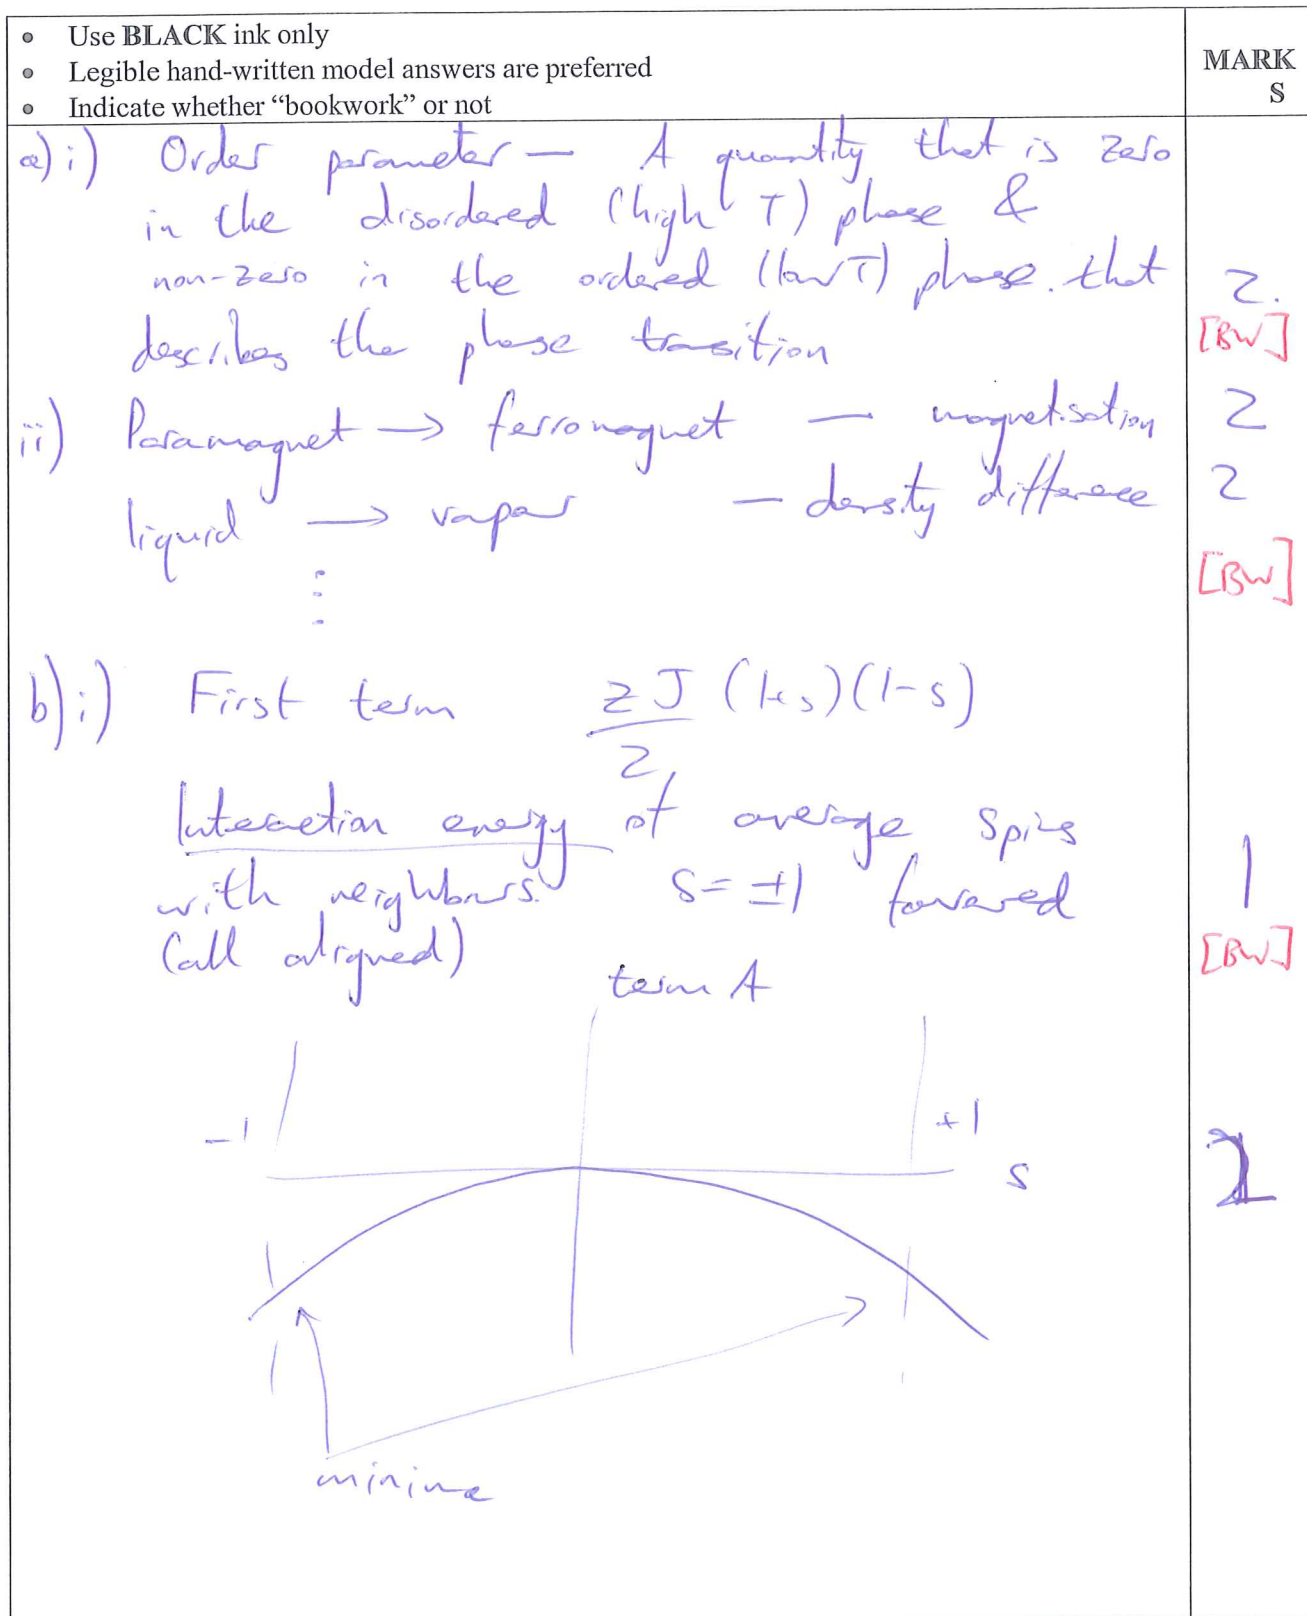 • Use BLACK ink only
• Legible hand-written model answers are preferred
• Indicate whether "bookwork" or not
MARK
S
a) i) Order parameter — A quantity that is zero
in the disordered (high T) phase &
non-zero in the ordered (low T) phase. that
describes the phase transition
2.
[BW]
ii) Paramagnet → ferromagnet — magnetisation
2
liquid → vapour — density difference
2
[BW]
b) i) First term zJ/2 (1+s)(1-s)
Interaction energy of average spins
with neighbours. S = ±1 favoured
(all aligned)
1
[BW]
term A
-1
+1
S
minima